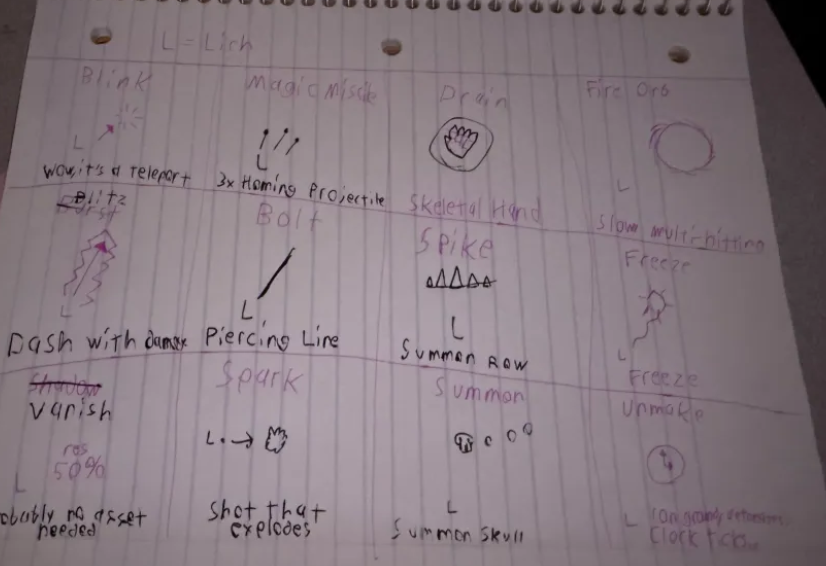 L = Lich
Blink
Magic Missile
Drain
Fire Orb
L
L
L
wow, it's a teleport
3x Homing Projectile
Skeletal Hand
Slow multi-hitting
Blitz
Bolt
Spike
Freeze
L
L
L
L
Dash with
Piercing Line
Summon Row
Freeze
Shadow
Vanish
Spark
Summon
Unmake
50%
L
L
L
L
no asset
needed
Shot that
explodes
Summon Skull
Clock +